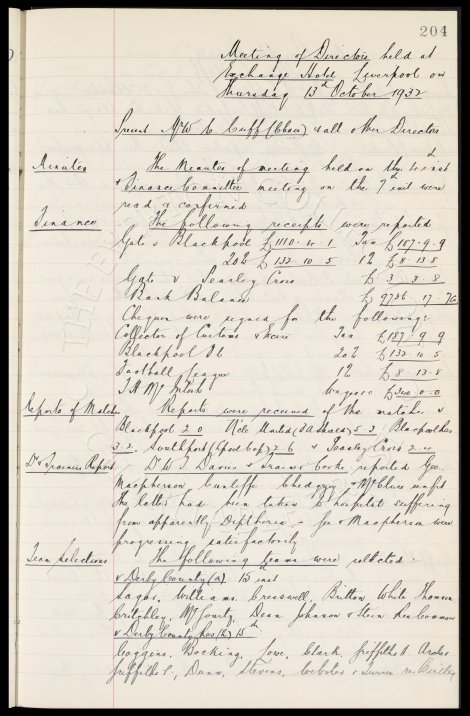 204
Meeting of Directors held at
Exchange Hotel Liverpool on
Thursday 13th October 1932
Present Mr W C Cuff (Chair) & all other Directors
Minutes The Minutes of meeting held on the inst
& Finance Committee meeting on the 7 inst were
read & confirmed
Finance The following receipts were reported
Gate v Blackpool £1110. 10. 1 Tax £187. 9. 9
20% £132 10 5 1% £8. 13. 8
Gate v Tearley Cross £ 3 3 8
Bank Balance £ 17
Cheques were signed for the following:
Collector of Customs & Excise Tax £187 9 9
Blackpool 20% £132. 10. 5
Football League 1% £8. 13. 8
Wages £300. 0. 0
Reports of Matches Reports were received of the matches v
Blackpool 2 0 N'cle United 5 3 Blackpool Res
3 2 Southport (L'pool Cup) 2 6 & Tearley Cross
Dr & Trainers Report Dr & Trainer Cooke reported Geo.
Macpherson Cunliffe Chedgzoy & McClure unfit
the latter had been taken to hospital suffering
from apparently Diptheria & Macpherson were
progressing satisfactorily
Team Selections The following teams were selected:
v Derby County (a) 15 inst
Sagar, Williams Cresswell, Britton White Thomson
Critchley, McGourty, Dean Johnson & Stein
v Derby County Res (h) 15th
Coggins, Bocking, Lowe, Clark, Griffiths Archer
Griffiths, Dunn, Stevens, Webster & Turner